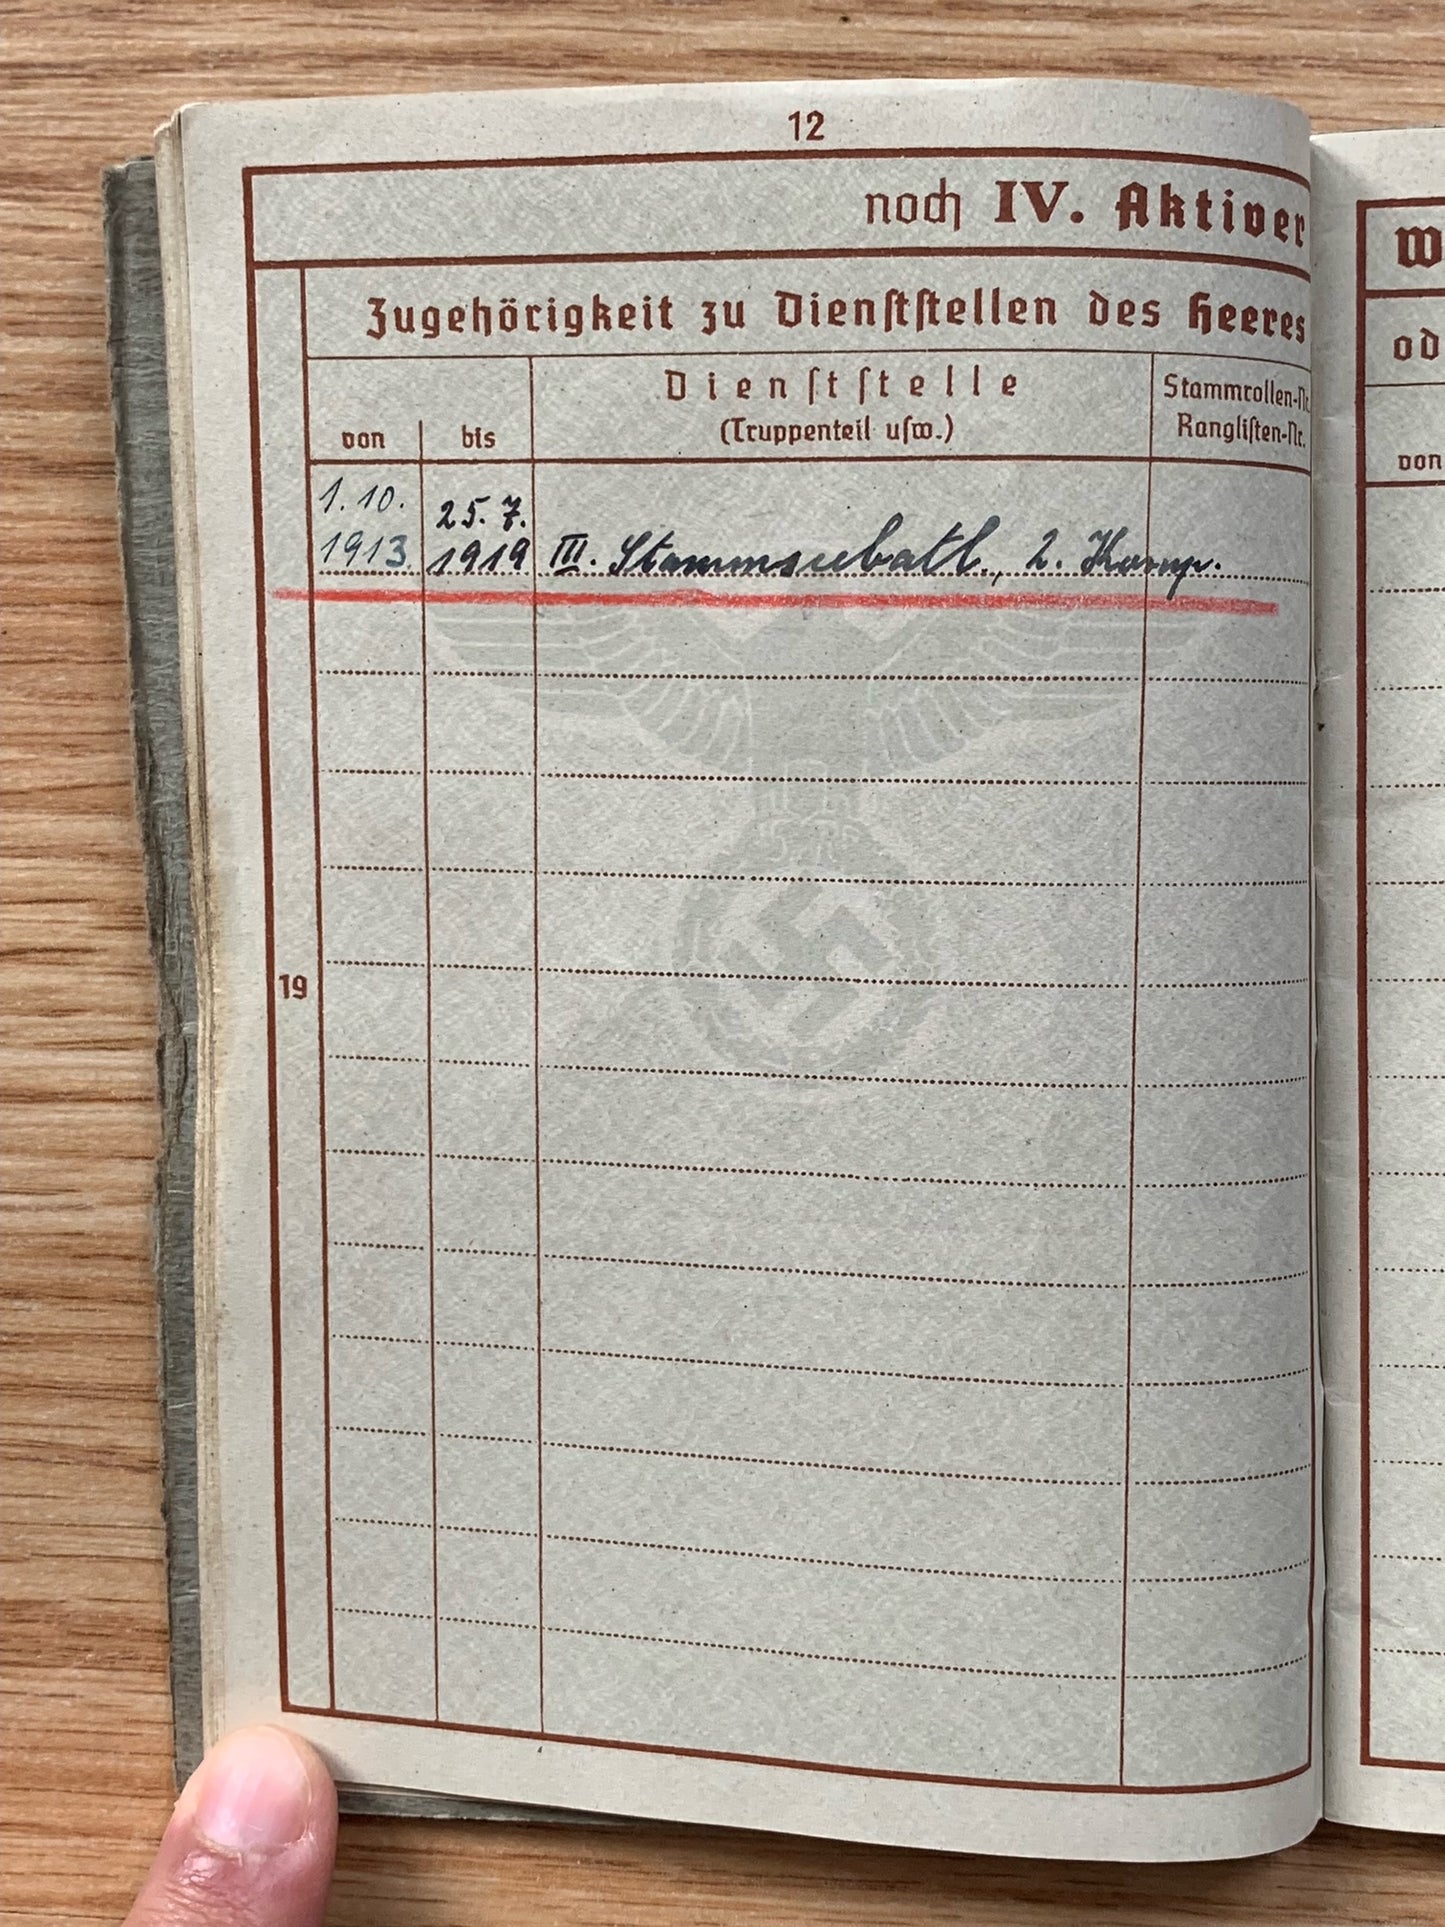 12
noch IV. Aktiver
W
Zugehörigkeit zu Dienststellen des Heeres
od
von
bis
Dienststelle
(Truppenteil usw.)
Stammrollen-Nr.
Ranglisten-Nr.
von
1.10.
1913.
25.7.
1919
III. Stammseebatl., 2. Komp.
19